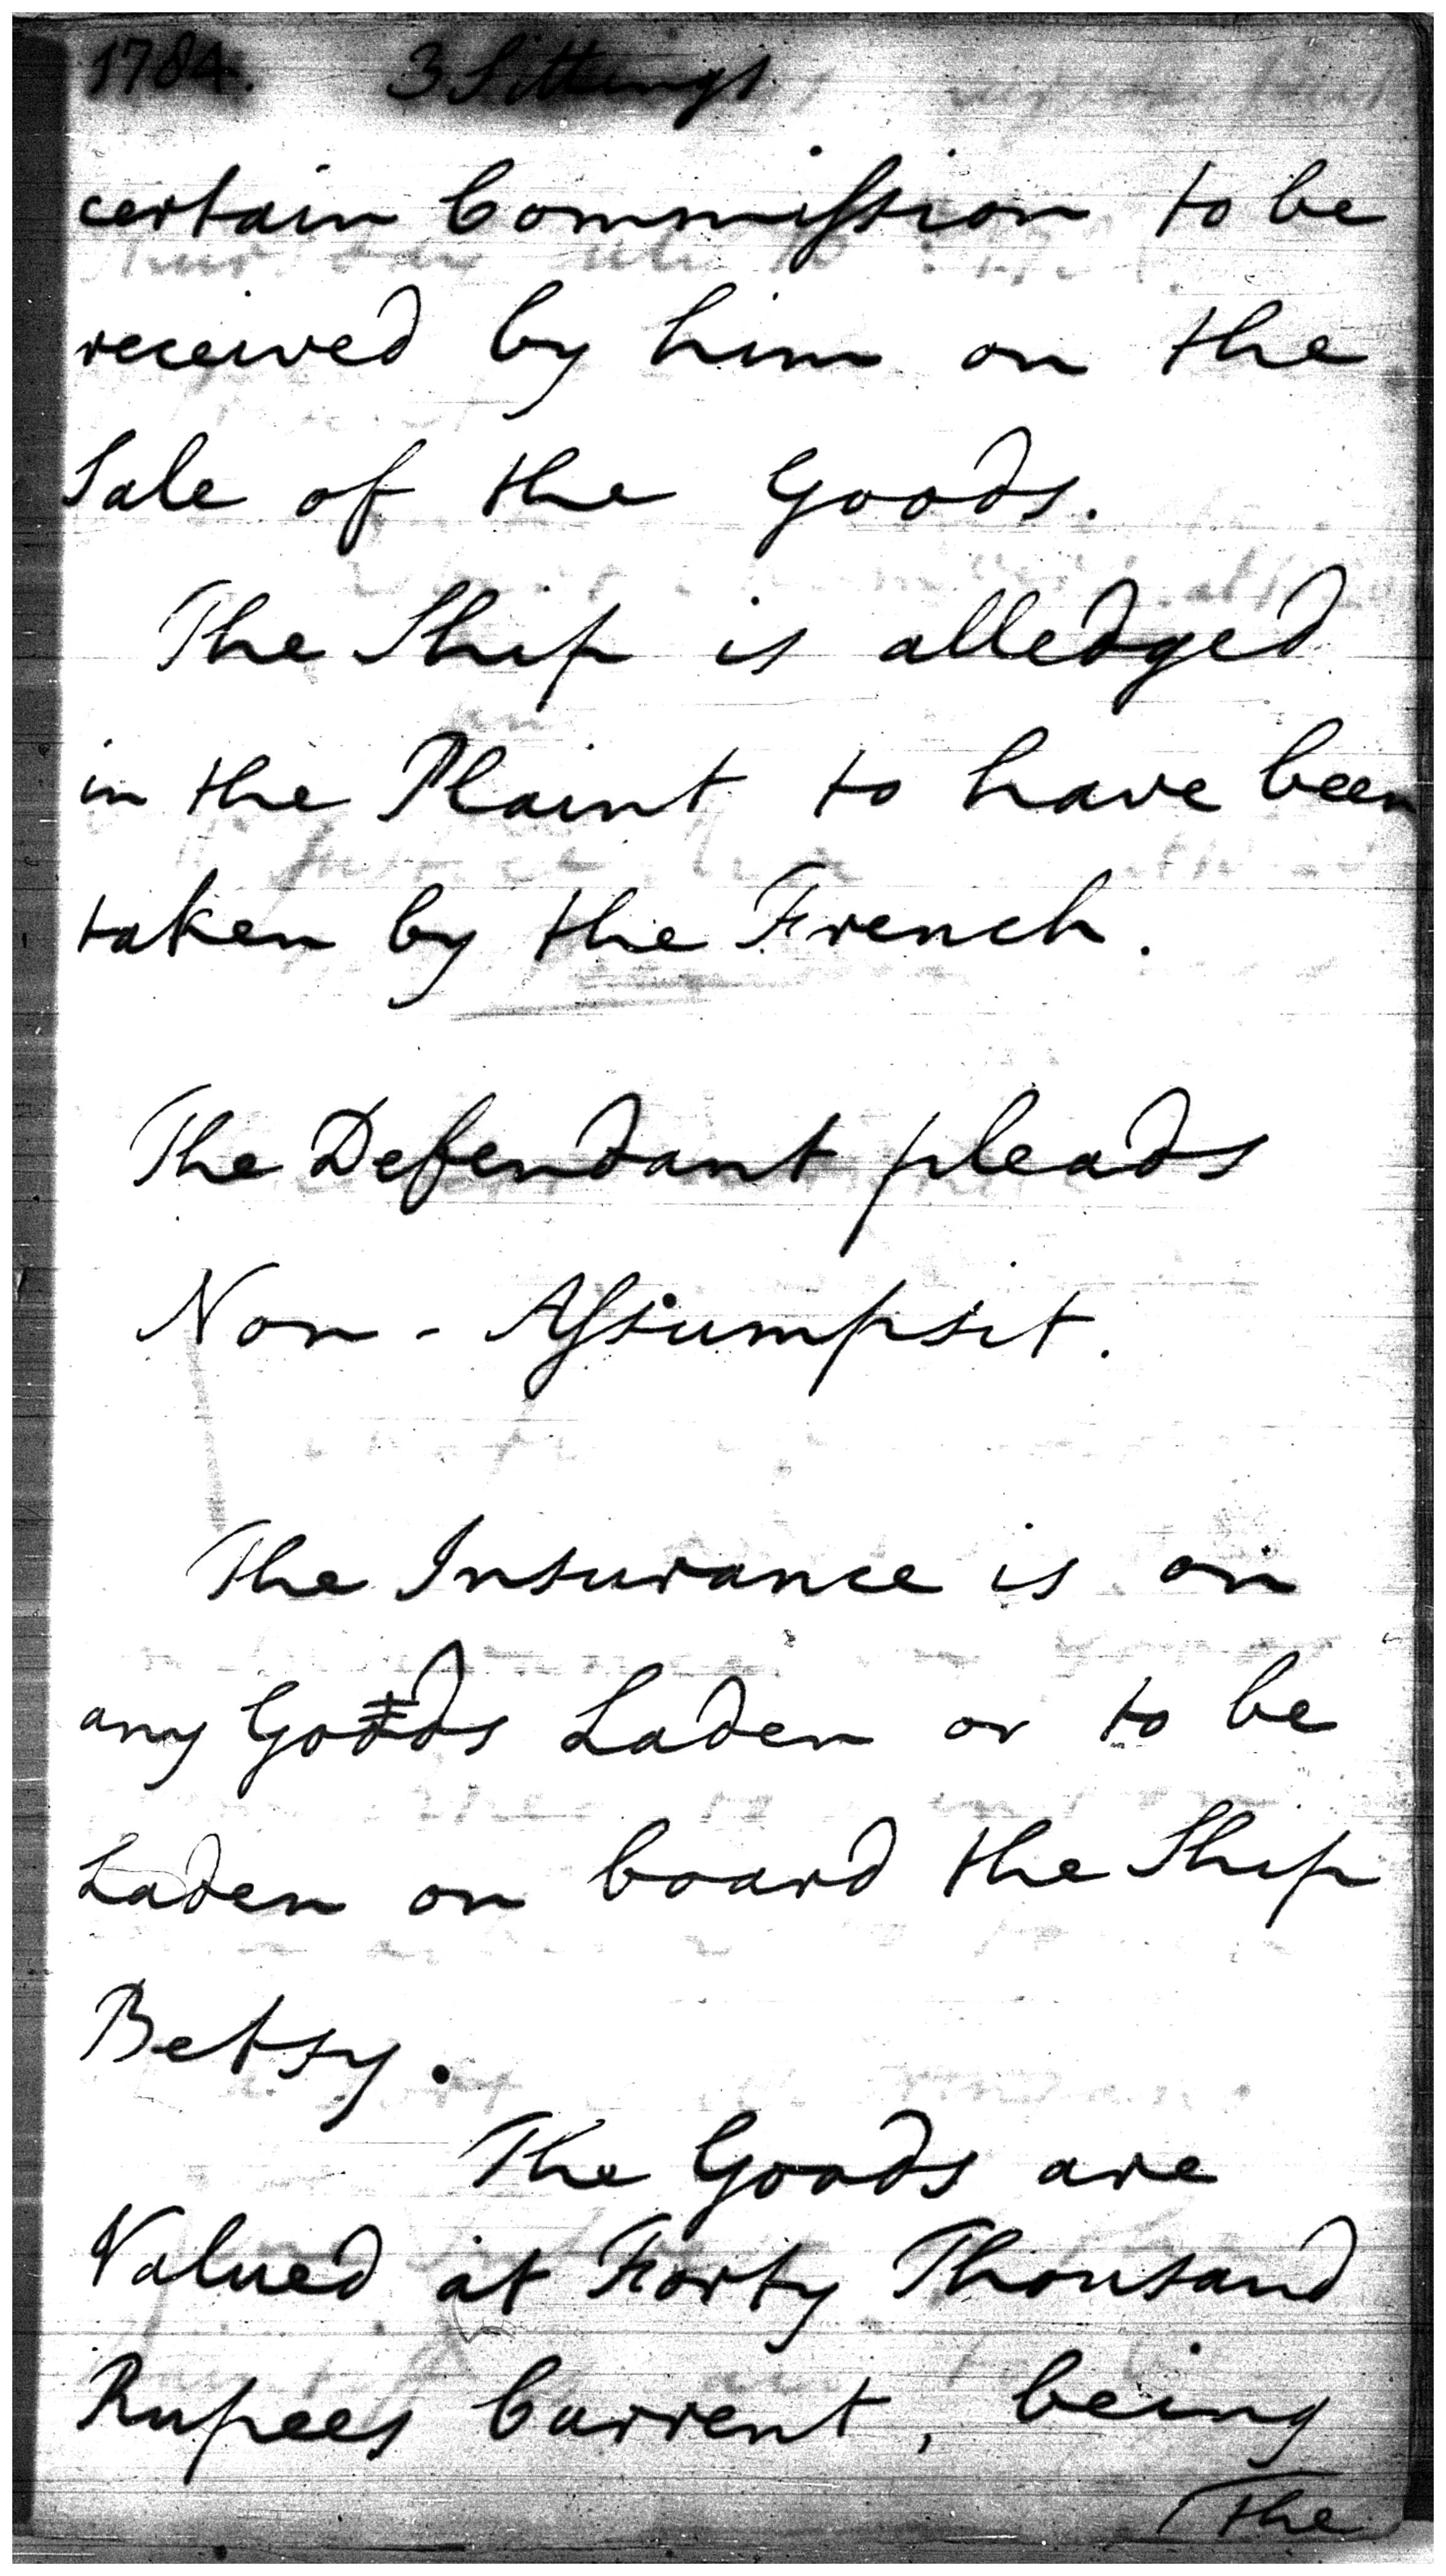 1784. 3 Sittings
certain Commission to be
received by him on the
Sale of the Goods.
The Ship is alledged
in the Plaint to have been
taken by the French.
The Defendant pleads
Non - Assumpsit.
The Insurance is on
any Goods Laden or to be
Laden on board the Ship
Betsy.
The Goods are
Valued at Forty Thousand
Rupees Current, being
The